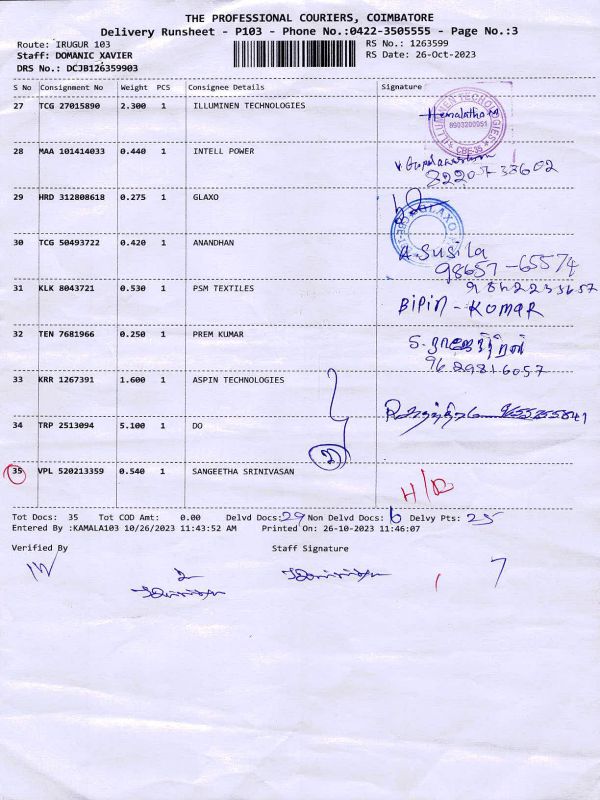 THE PROFESSIONAL COURIERS, COIMBATORE
Delivery Runsheet - P103 - Phone No.:0422-3505555 - Page No.:3
Route: IRUGUR 103 RS No.: 1263599
Staff: DOMANIC XAVIER RS Date: 26-Oct-2023
DRS No.: DCJB126359903
S No Consignment No Weight PCS Consignee Details Signature
27 TCG 27015890 2.300 1 ILLUMINEN TECHNOLOGIES Hemalatha M
ILLUMINEN TECHNOLOGIES
8903200951
CBE-35
28 MAA 101414033 0.440 1 INTELL POWER
82207-33602
29 HRD 312808618 0.275 1 GLAXO
GLAXO
30 TCG 50493722 0.420 1 ANANDHAN A. Susila
98657-65574
31 KLK 8043721 0.530 1 PSM TEXTILES
BIPIN - KUMAR
32 TEN 7681966 0.250 1 PREM KUMAR
9629816057
33 KRR 1267391 1.600 1 ASPIN TECHNOLOGIES
34 TRP 2513094 5.100 1 DO
2
35 VPL 520213359 0.540 1 SANGEETHA SRINIVASAN
Tot Docs: 35 Tot COD Amt: 0.00 Delvd Docs: 29 Non Delvd Docs: 6 Delvy Pts: 25
Entered By :KAMALA103 10/26/2023 11:43:52 AM Printed On: 26-10-2023 11:46:07
Verified By Staff Signature